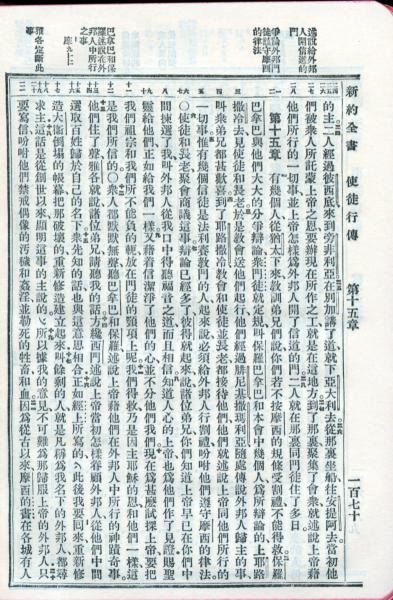 新約全書 使徒行傳 第十五章 一百七十
述說給外邦
人開信道的
門
爭論外邦門
徒該守摩西
的律法
巴拿巴和保
羅述說在外
邦人中所行
之事
雅各定斷此
事
的主二人經過彼西底來到旁非利亞在別加講了道就下亞大利去從那裏坐船往安提阿去當初他
們被衆人所託蒙上帝之恩要辦現在所作之工就是在這地方到了那裏聚集了會衆就述說上帝藉
他們所行的一切事並上帝怎樣為外邦人開了信道的門二人就在那裏同門徒住了多日
第十五章 有幾個人從猶太下來教訓弟兄們說你們若不按摩西的規條受割禮不能得救保羅
巴拿巴與他們大大的分爭辯論衆門徒就定規叫保羅巴拿巴和本會中幾個人爲所辯論的上耶路
撒冷去見使徒和長老於是教會送他們起行他們經過腓尼基撒瑪利亞隨處傳說外邦人歸主的事
叫衆弟兄都甚歡喜到了耶路撒冷教會和使徒並長老都接待他們他們就述說上帝同他們所行的
一切事惟有幾個信徒是法利賽教門的人起來說必須給外邦人行割禮吩咐他們遵守摩西的律法
○使徒和長老聚會商議這事辯論已經多了彼得就起來說諸位弟兄你們知道上帝早已在你們中
間揀選了我叫外邦人從我口中得聽福音之道而且相信知道人心的上帝也爲他們作了見證賜聖
靈給他們正如給我們一樣又藉着信潔淨了他們的心並不分他們我們現在爲甚麽試探上帝要把
我們祖宗和我們所不能負的軛放在門徒的頸項上呢我們得救乃是因主耶穌的恩和他們一樣這
是我們所信的○衆人都默默無聲聽巴拿巴和保羅述說上帝藉他們在外邦人中所行的神蹟奇事
他們住了聲雅各就說諸位弟兄請聽我的話方纔西門述說上帝當初怎樣眷顧外邦人從他們中間
選取百姓歸於自己的名下衆先知的話也與這意思相合正如經上所寫的此後我要回來重新修
造大衛倒塌的帳幕把那破壞的重新修造建立起來叫餘剩的人就是凡稱爲我名下的外邦人都尋
求主這話是從創世以來顯明這事的主說的所以據我的意見不可難爲那歸服上帝的外邦人只
要寫信吩咐他們禁戒偶像的汚穢和姦淫並勒死的牲畜和血因爲從古以來摩西的書在各城有人